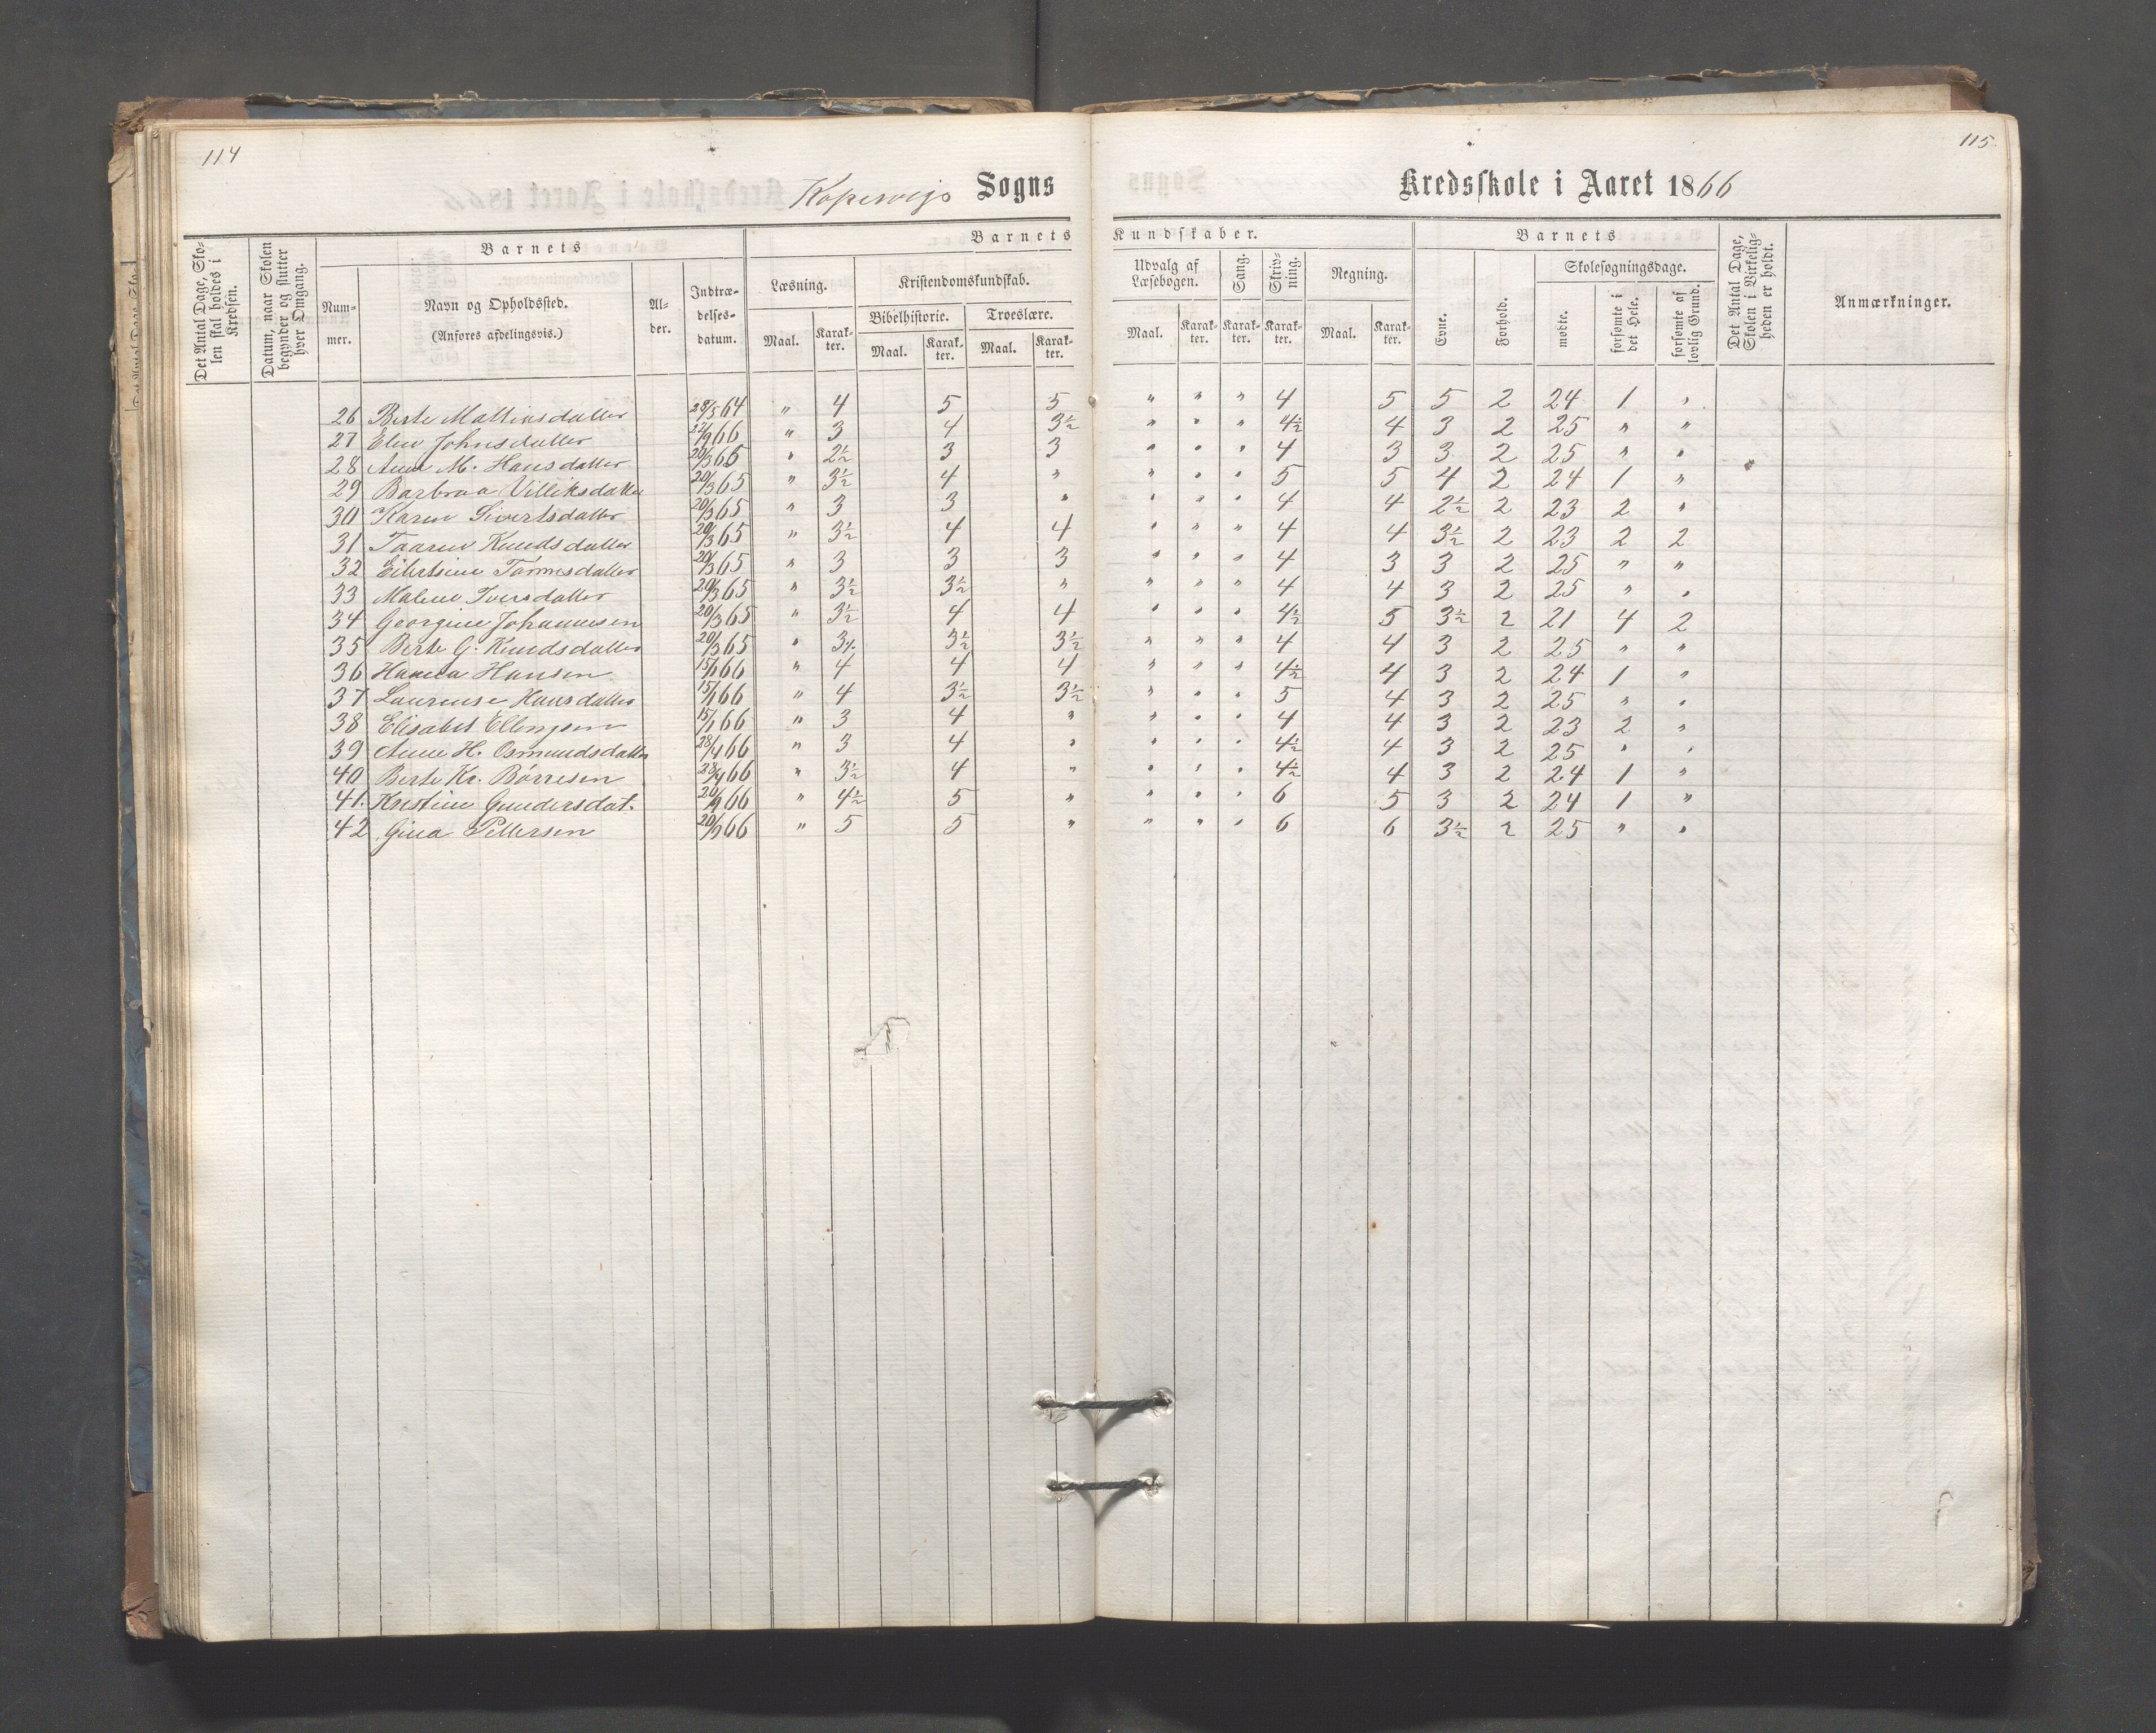 114
115
Kopervigs Sogns Kredsskole i Aaret 1866
Det Antal Dage, Skolen skal holdes i Kredsen.
Datum, naar Skolen begynder og slutter hver Omgang.
Barnets
Nummer.
Navn og Opholdssted.
(Anføres afdelingsvis.)
Alder.
Indtrædelsesdatum.
Barnets Kundskaber.
Læsning.
Maal. Karakter.
Kristendomskundskab.
Bibelhistorie. Troeslære.
Maal. Karakter. Maal. Karakter.
Udvalg af Læsebogen.
Maal. Karakter.
Sang.
Karakter.
Skrivning.
Karakter.
Regning.
Maal. Karakter.
Barnets
Evne.
Forhold.
Skolesøgningsdage.
mødte.
forsømte i det Hele.
forsømte af lovlig Grund.
Det Antal Dage, Skolen i Virkeligheden er holdt.
Anmærkninger.
26 Berte Mathiasdatter 28/5 64 " 4 5 5 " " " 4 5 5 2 24 1 "
27 Elen Johnsdatter 66 " 3 4 3½ " " " 4½ 4 3 2 25 " "
28 Ane M. Hansdatter 20/3 65 " 2½ 3 3 " " " 4 3 3 2 25 " "
29 Barbroa Villiksdatter 20/3 65 " 3½ 4 " " " " 5 5 4 2 24 1 "
30 Karen Sivertsdatter 20/3 65 " 3 3 " " " " 4 4 2½ 2 23 2 "
31 Taaren Knudsdatter 20/3 65 " 3½ 4 4 " " " 4 4 3½ 2 23 2 2
32 Eilertsine Tørresdatter 20/3 65 " 3 3 3 " " " 4 3 3 2 25 " "
33 Malene Iversdatter 20/3 65 " 3½ 3½ " " " " 4 4 3 2 25 " "
34 Georgine Johannesen 20/3 65 " 3½ 4 4 " " " 4½ 5 3½ 2 21 4 2
35 Berte G. Knudsdatter 20/3 65 " 3½ 3½ 3½ " " " 4 4 3 2 25 " "
36 Hanna Hansen 15/1 66 " 4 4 4 " " " 4½ 4 3 2 24 1 "
37 Laurense Hansdatter 15/1 66 " 4 3½ 3½ " " " 5 4 3 2 25 " "
38 Elisabet Ellingsen 15/1 66 " 3 4 " " " " 4 4 3 2 23 2 "
39 Anne H. Osmundsdatter 28/4 66 " 3 4 " " " " 4½ 4 3 2 25 " "
40 Berte Kr. Børresen 28/4 66 " 3½ 4 " " " " 4½ 4 3 2 24 1 "
41. Kristine Gundersdat. 20/9 66 " 4½ 5 " " " " 6 5 3 2 24 1 "
42 Gina Pettersen 20/9 66 " 5 5 " " " " 6 6 3½ 2 25 " "